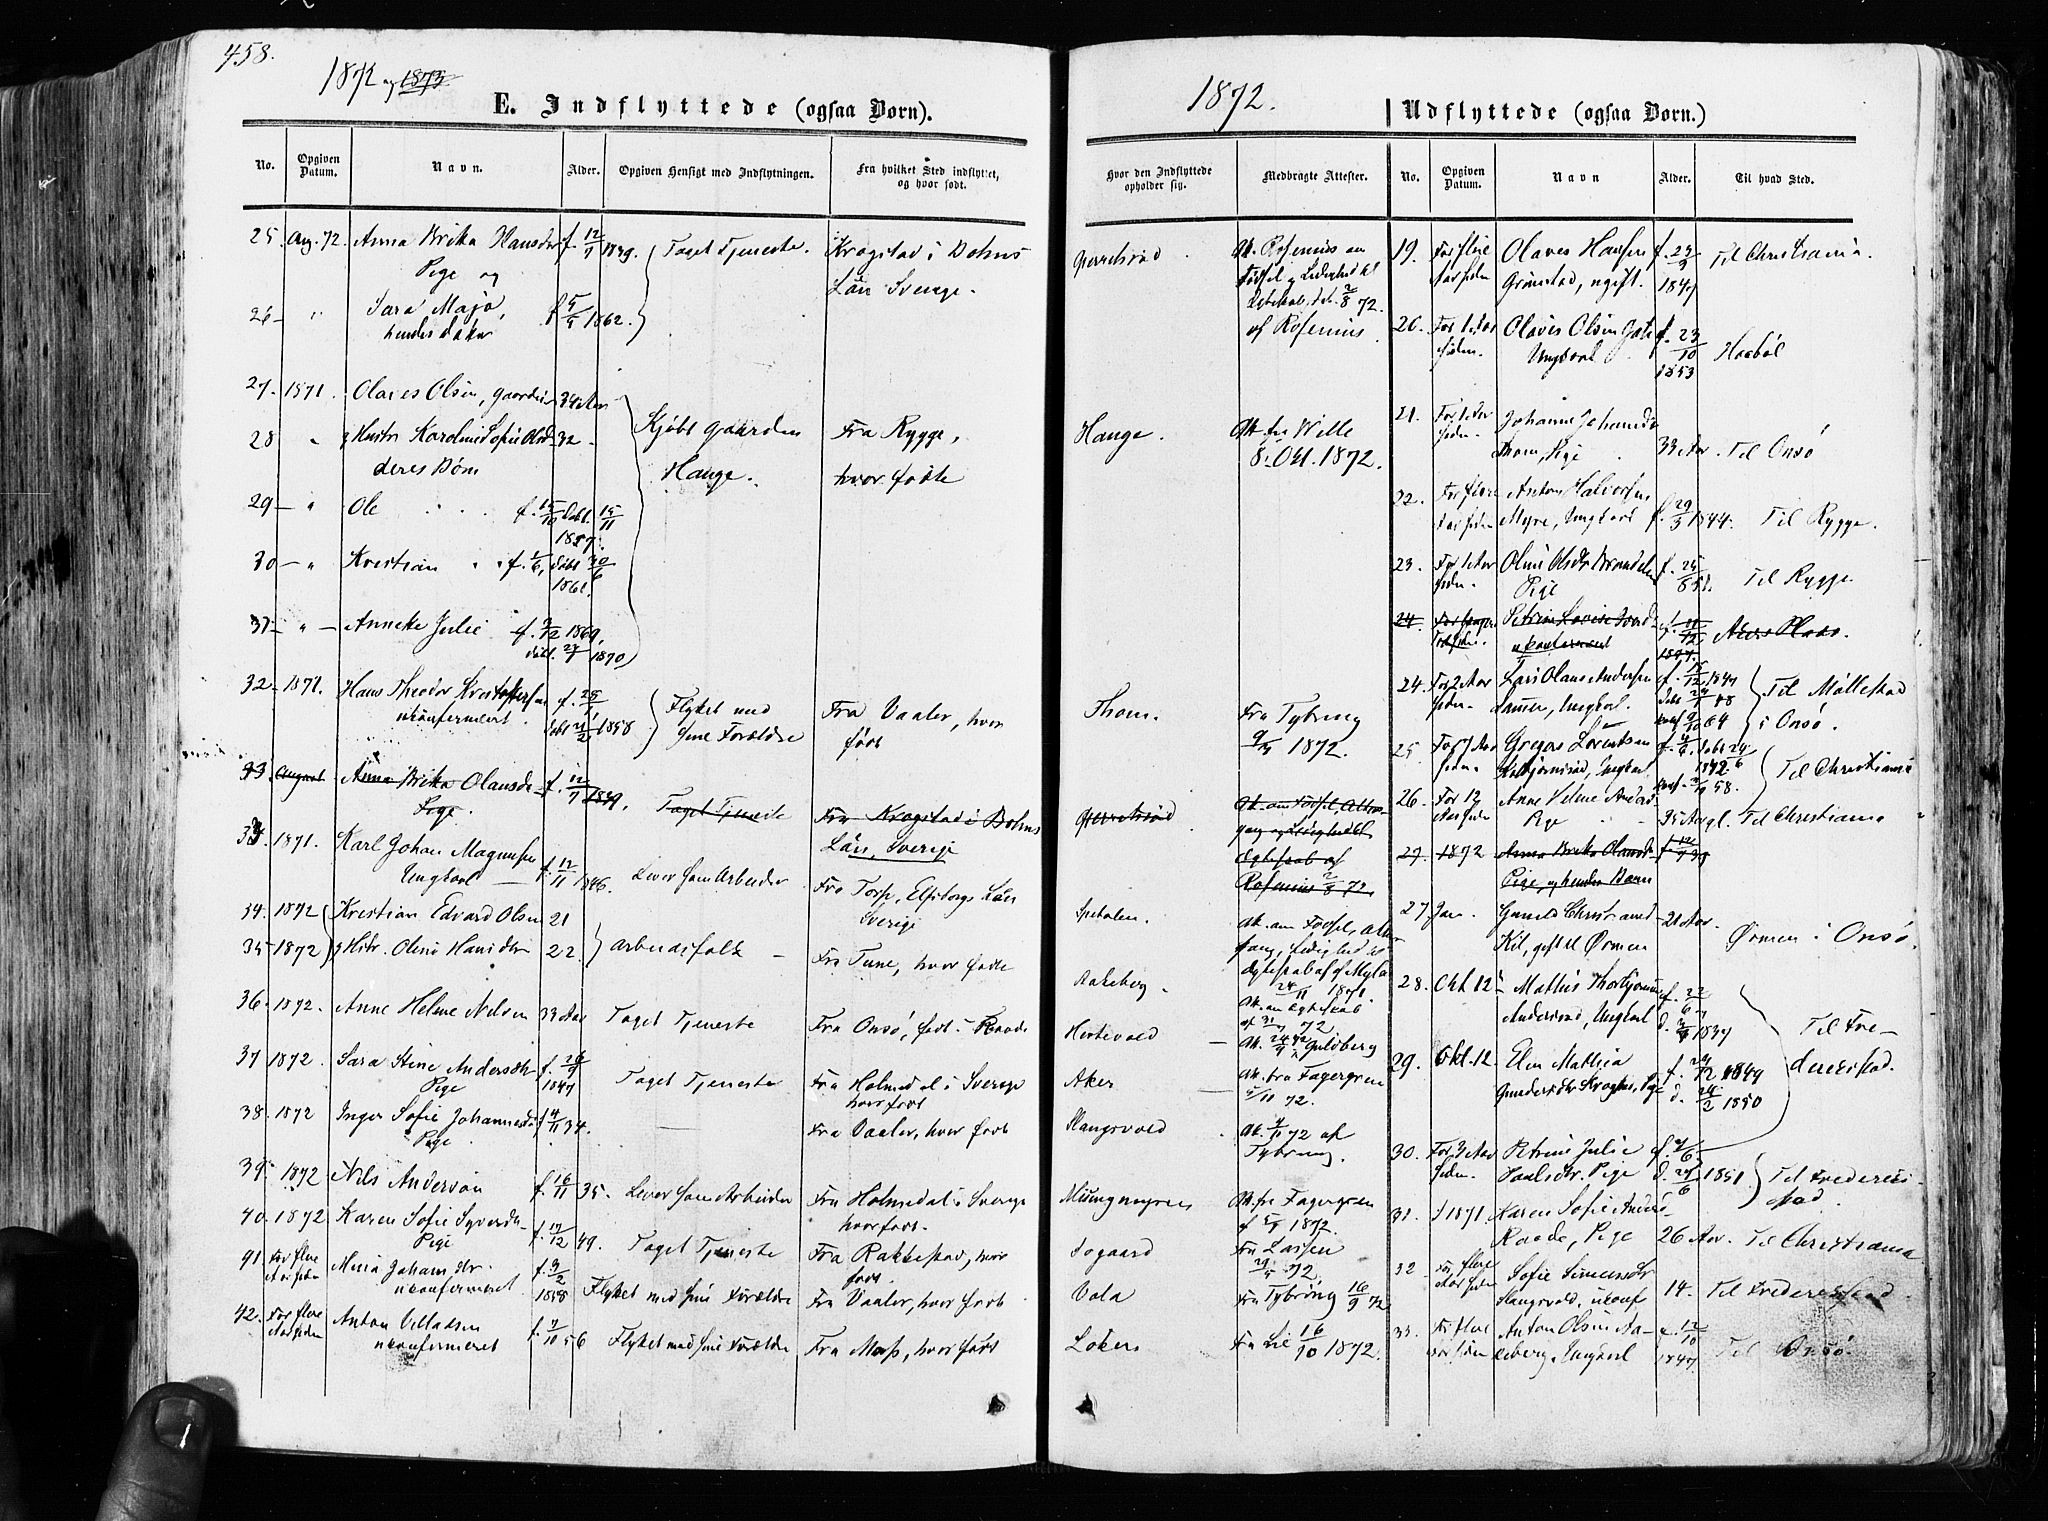 458.
1872 og 1873
E. Indflyttede (ogsaa Børn).
No.
Opgiven Datum.
Navn.
Alder.
Opgiven Hensigt med Indflytningen.
Fra hvilket Sted indflyttet, og hvor født.
25. Aug. 72. Anna Brita Hansdr f. 12/7 1839. Taget Tjeneste. Krogstad i Bohus
Pige og Län Sverige.
26 - " Sara Maja, f 5/5 1862.
hendes datter
27. 1871. Olaves Olsen, 34 Aar
28 " Hustr Karoline Sofie Olsd 32 - Kjøbt gaarden Fra Rygge,
deres Børn Hauge. hvor fødte
29 - " Ole f. 15/10 døbt. 15/11
1857.
30 - " Kristian f. 1/6, døbt 30/6
1861.
31 - " - Anneke Julie f. 3/12 1869,
døbt. 23/1 1870
32 - 1871. Hans Theodor f. 25/1 Flyttet med Fra Vaaler, hvor
ukonfirmeret. døbt 21/2 1858 sine Forældre født.
33. August Anna Brita Olausdr f. 12/7 1839. Taget Tjeneste Fra Krogstad i Bohus
Pige. Län, Sverige
33. 1871. Karl Johan Magnusen f. 12/11 1846. Lever som Arbeider Fra Torp, Elfsborgs Län
Ungkarl Sverige
34. 1872 Kristian Edvard Olsen 21
35 - 1872 Hstr. Oline Hansdtr 22. Arbeidsfolk - Fra Tune, hvor fødte
36. 1872. Anne Helene Nilsen 33 Aar Taget Tjeneste Fra Onsø, født i Raade
37 1872. Sara Stine Andersdtr f. 28/9 Taget Tjeneste Fra Holmedal i Sverige
Pige 1847 hvor født
38. 1872 Inger Sofie Johannesdr f 4/11 34. Fra Vaaler, hvor født
Pige
39. 1872 Nils Anderson f. 16/11 35. Lever som Arbeider Fra Holmedal i Sverige
hvor født.
40. 1872 Karen Sofie Syversdtr f. 17/12 49. Taget Tjeneste Fra Rakkestad, hvor
Pige født.
41. For flere Mina Johansdr. f. 3/2 Flyttet med sine Forældre Fra Vaaler, hvor født
Aar siden ukonfirmeret. 1858
42. For flere Anton Villadsen f. 7/10 56 Flyttet med sine Forældre Fra Moss, hvor født
Aar siden ukonfirmeret
1872.
Udflyttede (ogsaa Børn.)
Hvor den Indflyttede opholder sig.
Medbragte Attester.
No.
Opgiven Datum.
Navn
Alder.
Til hvad Sted.
At. Rosenius om
Fødsel og Ledighed til
Egteskab, dat. 2/8 72.
af Rosenius
Hauge. At. fra Wille
8. Okt. 1872.
Thom. Fra Tybring
9/4 1872.
At. om Fødsel,
Egteskab af
Rosenius 2/8 72
Spetalen. At. om Fødsel,
24/11 1871.
Aakeberg. At. om Egteskab
af 31/7 72.
Hestevold At. 24/9 72 Guldberg
Aker At. fra Fagergren
5/11 72.
Slangsvold At. 4/11 72 af
Tybring.
At. fra Fagergren
1872.
Sogaard Fra Lassen
29/5 72.
Vola Fra Tybring 16/9 72
Løken Fra Lie 16/10 1872.
19. For flere Olaves Hansen f. 23/9 Til Christiania.
Aar siden Grimstad, ugift. 1847
20. For 1 Aar Olaves Olsen f. 23/10 Haabøl
siden. Ungkarl 1853
21. For 1 Aar Johanne
siden. Thom, Pige 33 Aar. Til Onsø
22. For flere Anton Halvorsen
Aar siden Myre, Ungkarl f. 29/3 1844. Til Rygge.
23. For 1 Aar Oline Olsdr f. 25/8 51. Til Rygge
siden. Pige
24. For lange Petrine Lovise
Tid siden. ukonfirmeret Moss.
24. For 2 Aar Lars Olaus Andersen f. 15/12 1847 Til Møllestad
siden. Ungkarl. i Onsø.
25. For 7 Aar Gregers Lorentsen f. 4/6. døbt 24/6 Til Christiania
siden. Ungkarl. 1842
26. For 12 Anne Helene 35 Aar gl. Til Christiania
Aar siden Pige
27. 1872 Anna Brita Olausdr f. 12/7 39
Pige, og hendes Barn
27 Jan. Gunild 21 Aar. Ørmen i Onsø.
Kil, gift til Ørmen
28. Okt 12 - Mathis f. 22/6 Til Fre-
Ungkarl d. 1837 derikstad.
29. Okt. 12. Elen Mathea f. 1849
Pige d. 24/2 1850
30. For 3 Aar Petrine Julie f. 4/6 - Til Frederik-
siden. Pige d. 29/6 1851 stad.
31. I 1871. Karen Sofie
Raade, Pige 26 Aar. Til Christiania
32 For flere Sofie Simensdr 14. Til Frederikstad.
Aar siden Slangsvold, ukonf
33. For flere Anton Olsen Aa- f. 12/10 Til Onsø
Aar siden keberg, Ungkarl 1847